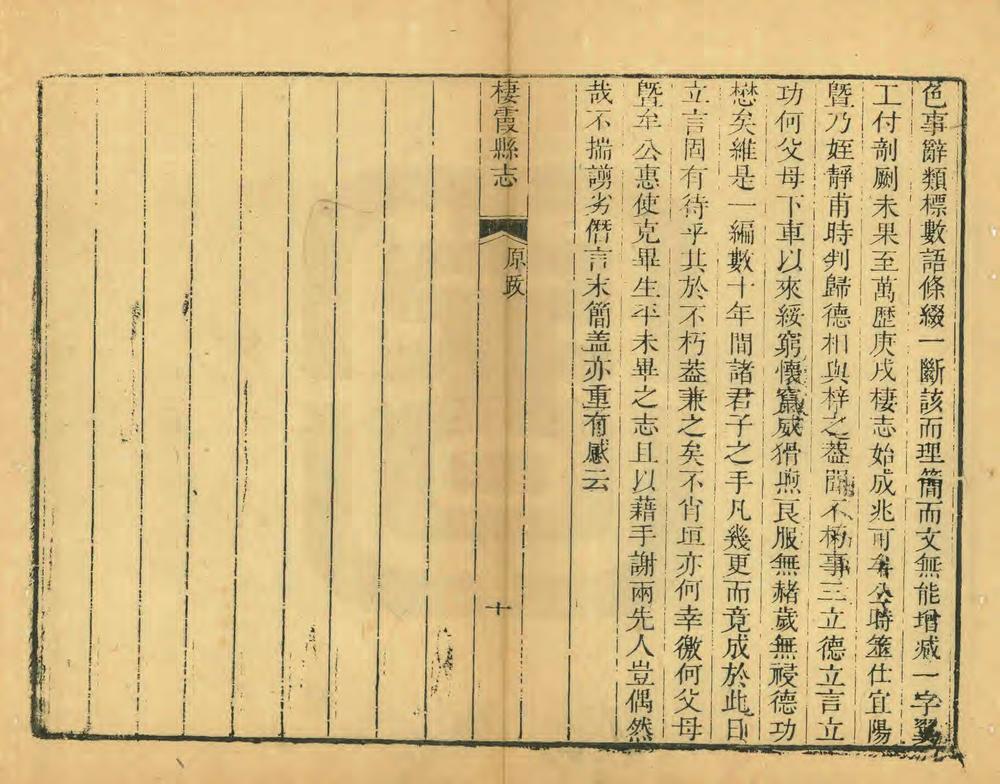 色事辭類標數語條綴一斷該而理簡而文無能增減一字翼
工付剞劂未果至萬歷庚戌棲志始成兆可牟公時筮仕宜陽
曁乃姪靜甫時判歸德相與梓之葢聞不朽事三立德立言立
功何父母下車以來綏窮懷竄威猾煦良服無赭歲無祲德功
懋矣維是一編數十年間諸君子之手凡幾更而竟成於此日
立言固有待乎其於不朽葢兼之矣不肖垣亦何幸徼何父母
曁牟公惠使克畢生平未畢之志且以藉手謝兩先人豈偶然
哉不揣謭劣僭言末簡盖亦重有感云
棲霞縣志
原跋
十